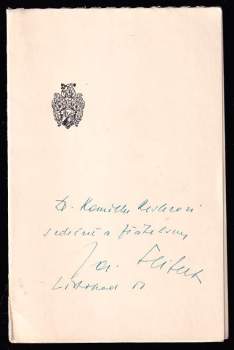 Dr. Kamillu Reslerovi
srdečně a přátelsky
Jar. Seifert
Listopad 51